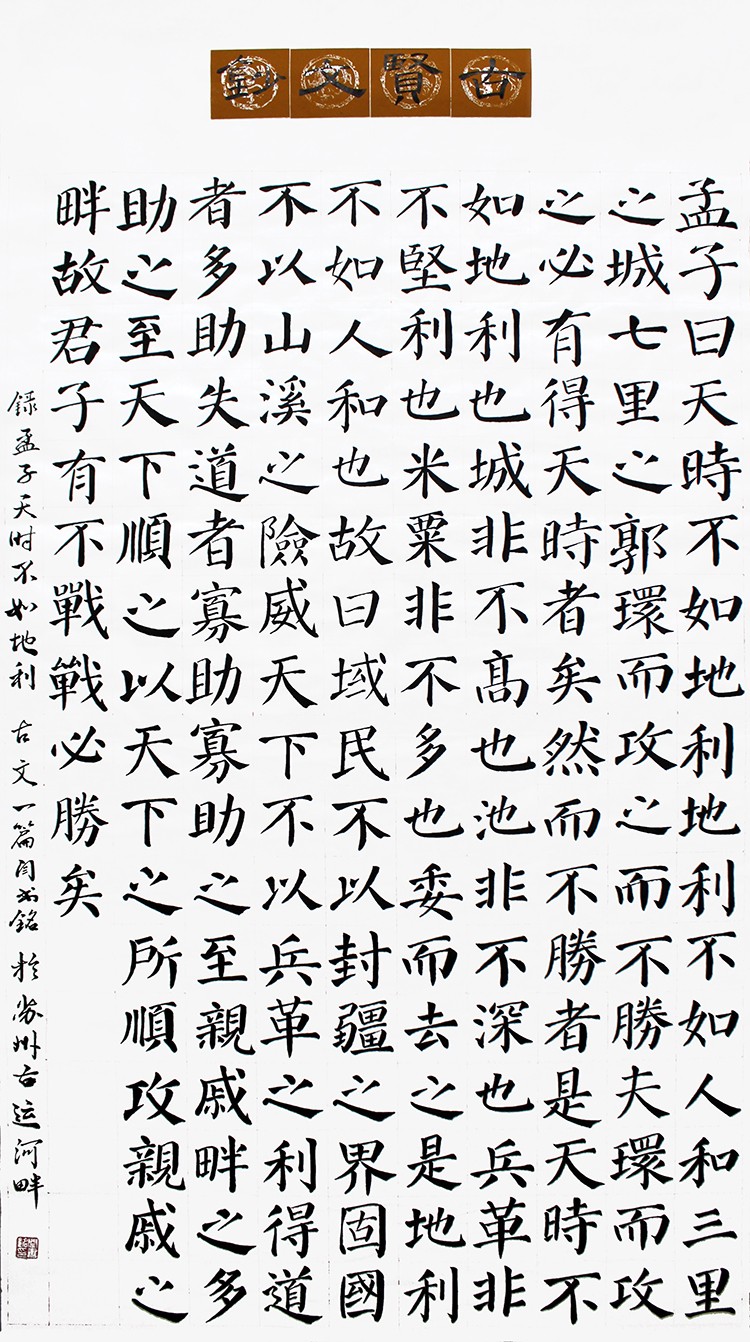 古賢文鈔
孟子曰天時不如地利地利不如人和三里
之城七里之郭環而攻之而不勝夫環而攻
之必有得天時者矣然而不勝者是天時不
如地利也城非不髙也池非不深也兵革非
不堅利也米粟非不多也委而去之是地利
不如人和也故曰域民不以封疆之界固國
不以山溪之險威天下不以兵革之利得道
者多助失道者寡助寡助之至親戚畔之多
助之至天下順之以天下之所順攻親戚之
畔故君子有不戰戰必勝矣
録孟子天时不如地利 古文一篇 闫书銘 於苏州古运河畔